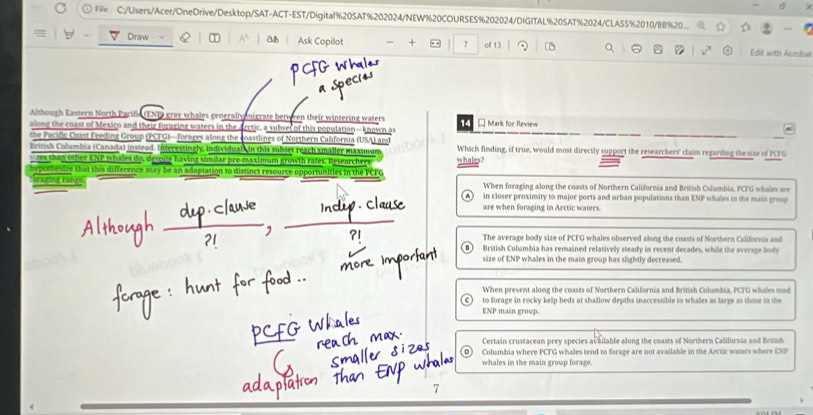 File C:/Users/Acer/OneDrive/Desktop/SAT-ACT-EST/Digital%20SAT%202024/NEW%20COURSES%202024/DIGITAL%20SAT%2024/CLASS%2010/BB%20...
Draw Ask Copilot 7 of 13 Edit with Acrobat
PCFG Whales
a species
Although Eastern North Pacific (ENP) gray whales generally migrate between their wintering waters
along the coast of Mexico and their foraging waters in the Arctic, a subset of this population—known as
the Pacific Coast Feeding Group (PCFG)—forages along the coastlines of Northern California (USA) and
British Columbia (Canada) instead. Interestingly, individuals in this subset reach smaller maximum
sizes than other ENP whales do, despite having similar pre-maximum growth rates. Researchers
hypothesize that this difference may be an adaptation to distinct resource opportunities in the PCFG
foraging range.
Although dep. clause , indep. clause
?! ?!
more important
forage : hunt for food..
PCFG Whales
reach max.
smaller sizes
adaptation than ENP whales
7
14 Mark for Review
Which finding, if true, would most directly support the researchers' claim regarding the size of PCFG
whales?
A When foraging along the coasts of Northern California and British Columbia, PCFG whales are
in closer proximity to major ports and urban populations than ENP whales in the main group
are when foraging in Arctic waters.
B The average body size of PCFG whales observed along the coasts of Northern California and
British Columbia has remained relatively steady in recent decades, while the average body
size of ENP whales in the main group has slightly decreased.
C When present along the coasts of Northern California and British Columbia, PCFG whales tend
to forage in rocky kelp beds at shallow depths inaccessible to whales as large as those in the
ENP main group.
D Certain crustacean prey species available along the coasts of Northern California and British
Columbia where PCFG whales tend to forage are not available in the Arctic waters where ENP
whales in the main group forage.